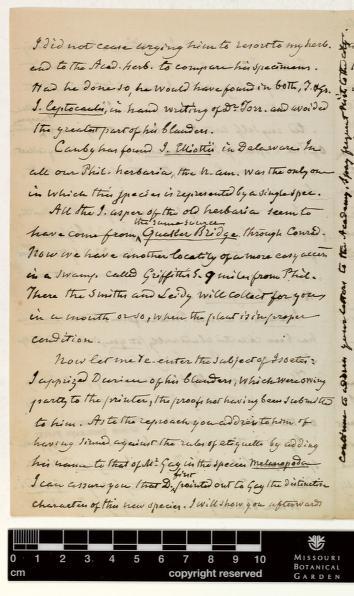 I did not cease urging him to resort to my herb.
and to the Acad. herb. to compare his specimens.
Had he done so, he would have found in both, J.
J. leptocaulis, in hand writing of Dr. Torr. and avoided
the greatest part of his blunders.
Canby has found J. Elliottii in Delaware. In
all our Phil. herbaria, the N. am. was the only one
in which this species is represented by a single spec.
All the J. asper of the old herbaria seem to
have come from the same source Quaker Bridge through Conrad.
Now we have another locality of a more easy access
in a swamp called Griffiths S. 9 miles from Phil.
There the Smiths and Leidy will collect for you
in a month or so, when the plant is in proper
condition.
Now let me re-enter the subject of Isoetes:
I apprized Durieu of his blunders, which were owing
partly to the printer, the proofs not having been submitted
to him. As to the reproach you address to him of
having sinned against the rules of etiquette by adding
his name to that of Mr. Gay in the species melanopoda
I can assure you that D. first pointed out to Gay the distinctive
characters of this new species. I will show you afterwards
Continue to address your letters to the Academy, I pay frequent visits to the city.
0 1 2 3 4 5 6 7 8 9 10
cm
copyright reserved
MISSOURI
BOTANICAL
GARDEN